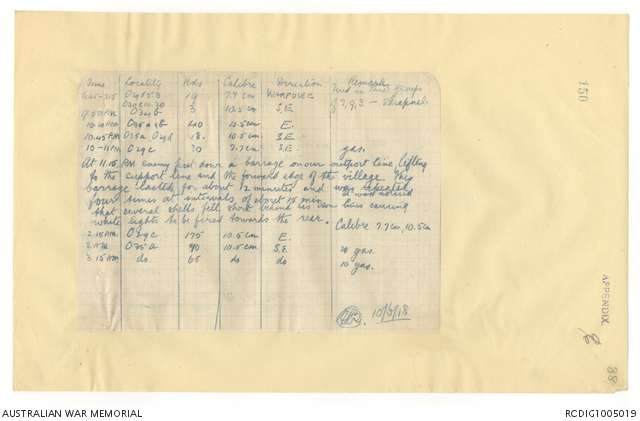 Time Locality Rds Calibre Direction Remarks
6.45-7.15 O34d5.3 19 7.7 cm WARFUSEE Fired in three groups
O29c20.20 of 7, 9, 3 – Shrapnel
9.50 PM O34b 3 10.5 cm S.E.
10.40 PM O35a & b 40 10.5 cm E.
10.45 PM O35a, O34d 18. 10.5 cm S.E.
10-11 PM O29c 30 7.7 cm S.E. gas.
At 11.15 PM enemy put down a barrage on our outpost line, lifting
to the support line and the forward edge of the village. This
barrage lasted for about 12 minutes and was repeated
four times at intervals, of about 15 min. It was noticed
that several shells fell short behind his own lines causing
white lights to be fired towards the rear. Calibre 7.7 cm, 10.5 cm
2.15 AM O29c 175 10.5 cm E.
O35a 90 10.5 cm S.E. 20 gas.
3.15 AM do. 65 do do 10 gas.
10/5/18
150
APPENDIX
88
AUSTRALIAN WAR MEMORIAL
RCDIG1005019